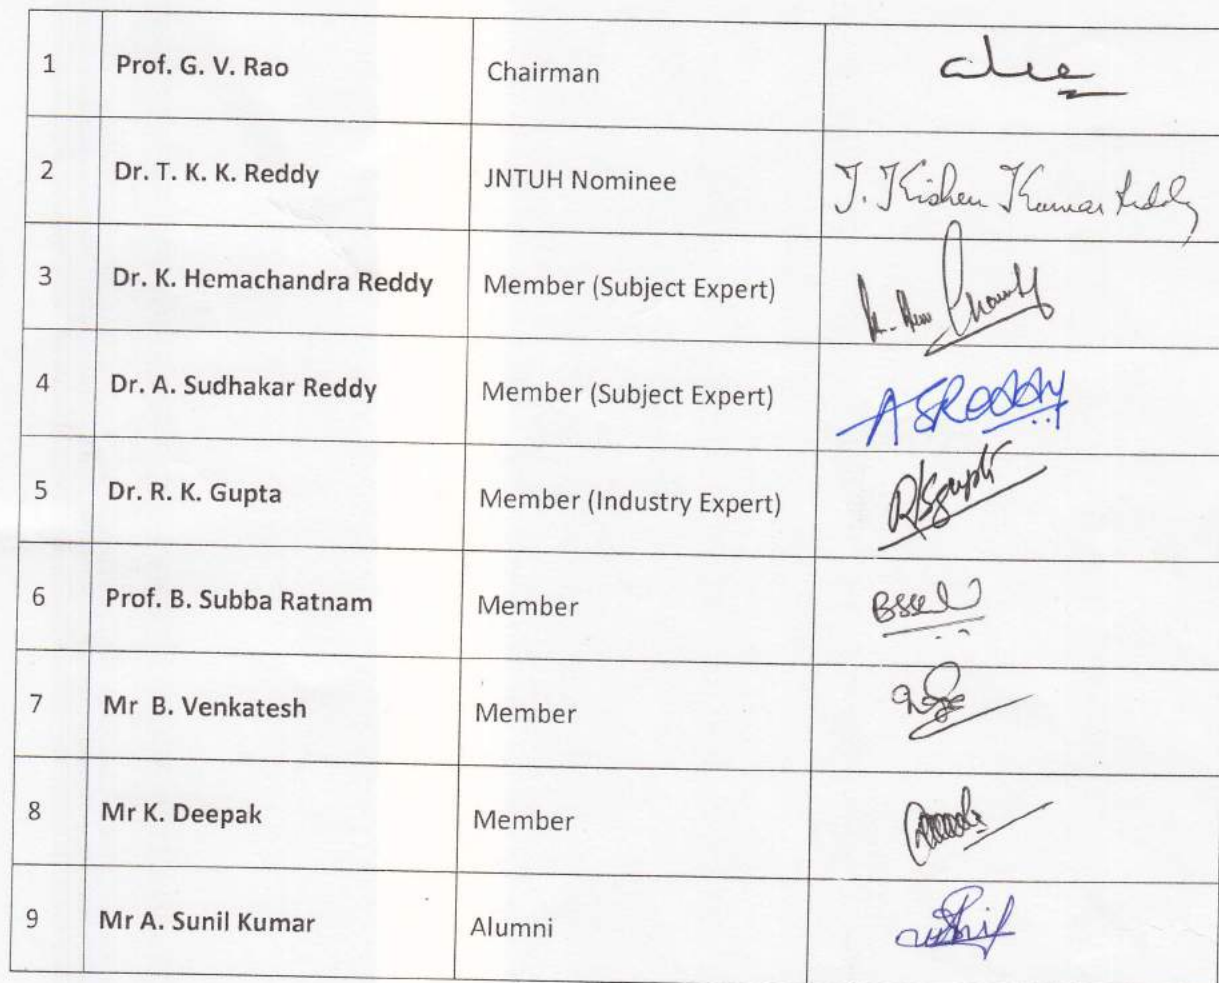 1 Prof. G. V. Rao Chairman
2 Dr. T. K. K. Reddy JNTUH Nominee T. Kishen Kumar Reddy
3 Dr. K. Hemachandra Reddy Member (Subject Expert)
4 Dr. A. Sudhakar Reddy Member (Subject Expert) ASReddy
5 Dr. R. K. Gupta Member (Industry Expert) RKGupta
6 Prof. B. Subba Ratnam Member
7 Mr B. Venkatesh Member
8 Mr K. Deepak Member
9 Mr A. Sunil Kumar Alumni